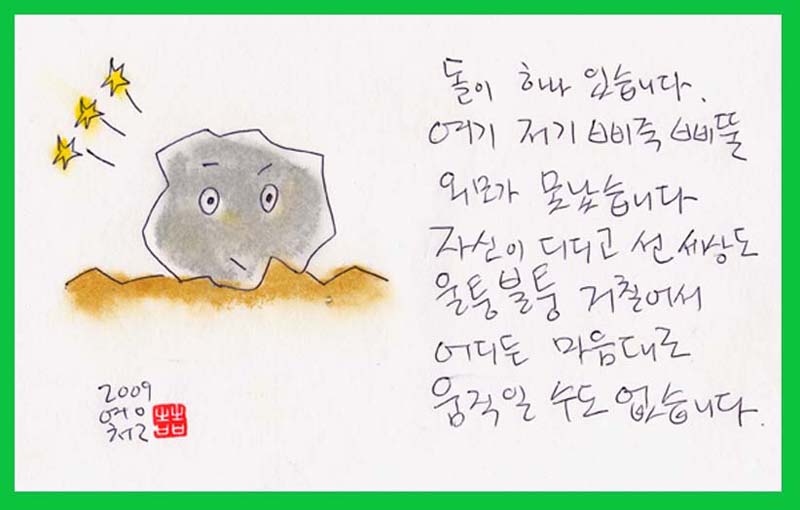 돌이 하나 있습니다.
여기 저기 삐죽 삐뚤
외모가 못났습니다
자신이 디디고 선 세상도
울퉁불퉁 거칠어서
어디든 마음대로
움직일 수도 없습니다.
2009